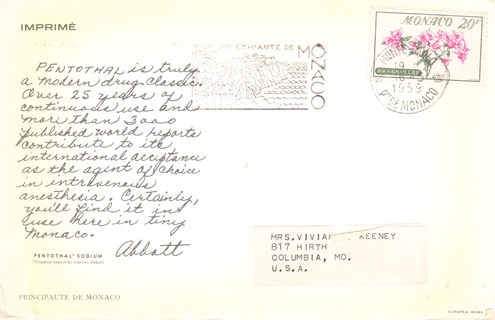 IMPRIMÉ
PRINCIPAUTE DE
MONACO
MONACO 20F
BOUGAINVILLÉE
19
1959
PTE DE MONACO
PENTOTHAL is truly
a modern drug classic.
Over 25 years of
continuous use and
more than 3000
published world reports
contribute to its
international acceptance
as the agent of choice
in intravenous
anesthesia. Certainly,
you'll find it in
use here in tiny
Monaco.
Abbott
PENTOTHAL® SODIUM
(Thiopental Sodium for Injection, Abbott)
MRS. VIVIAN KEENEY
817 HIRTH
COLUMBIA, MO.
U.S.A.
PRINCIPAUTE DE MONACO